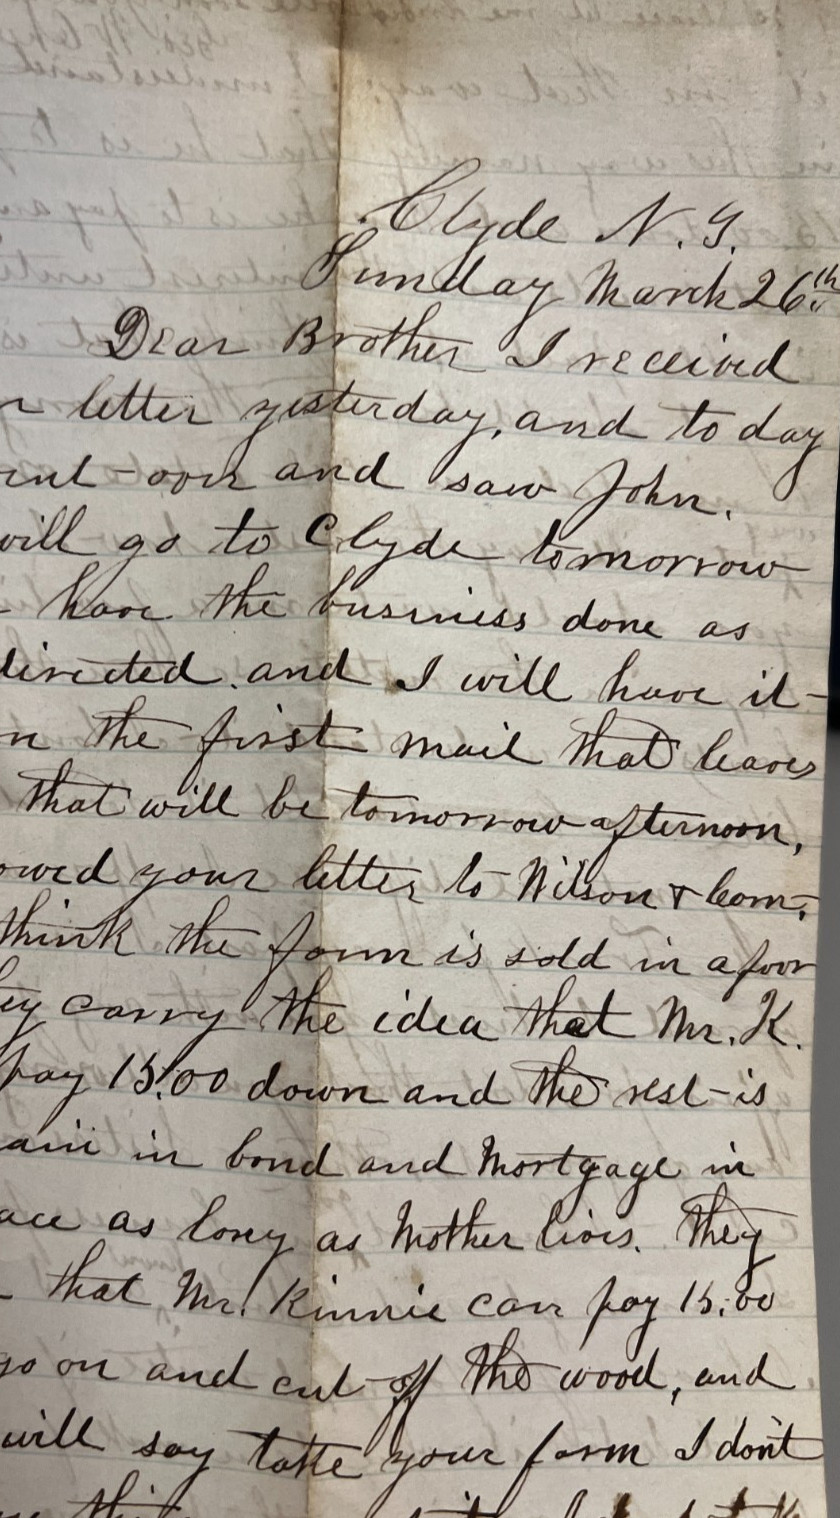 Clyde N.Y.
Sunday March 26th
Dear Brother I received
letter yesterday, and to day
over and saw John.
will go to Clyde tomorrow
have the business done as
directed. and I will have it
the first mail that leaves
that will be tomorrow afternoon,
your letter to Wilson & Com;
think the farm is sold in a poor
carry the idea that Mr. K.
pay 15.00 down and the rest is
in bond and Mortgage in
as long as Mother lives. They
that Mr. Kinnie can pay 15.00
go on and cut off the wood, and
will say take your farm I don't